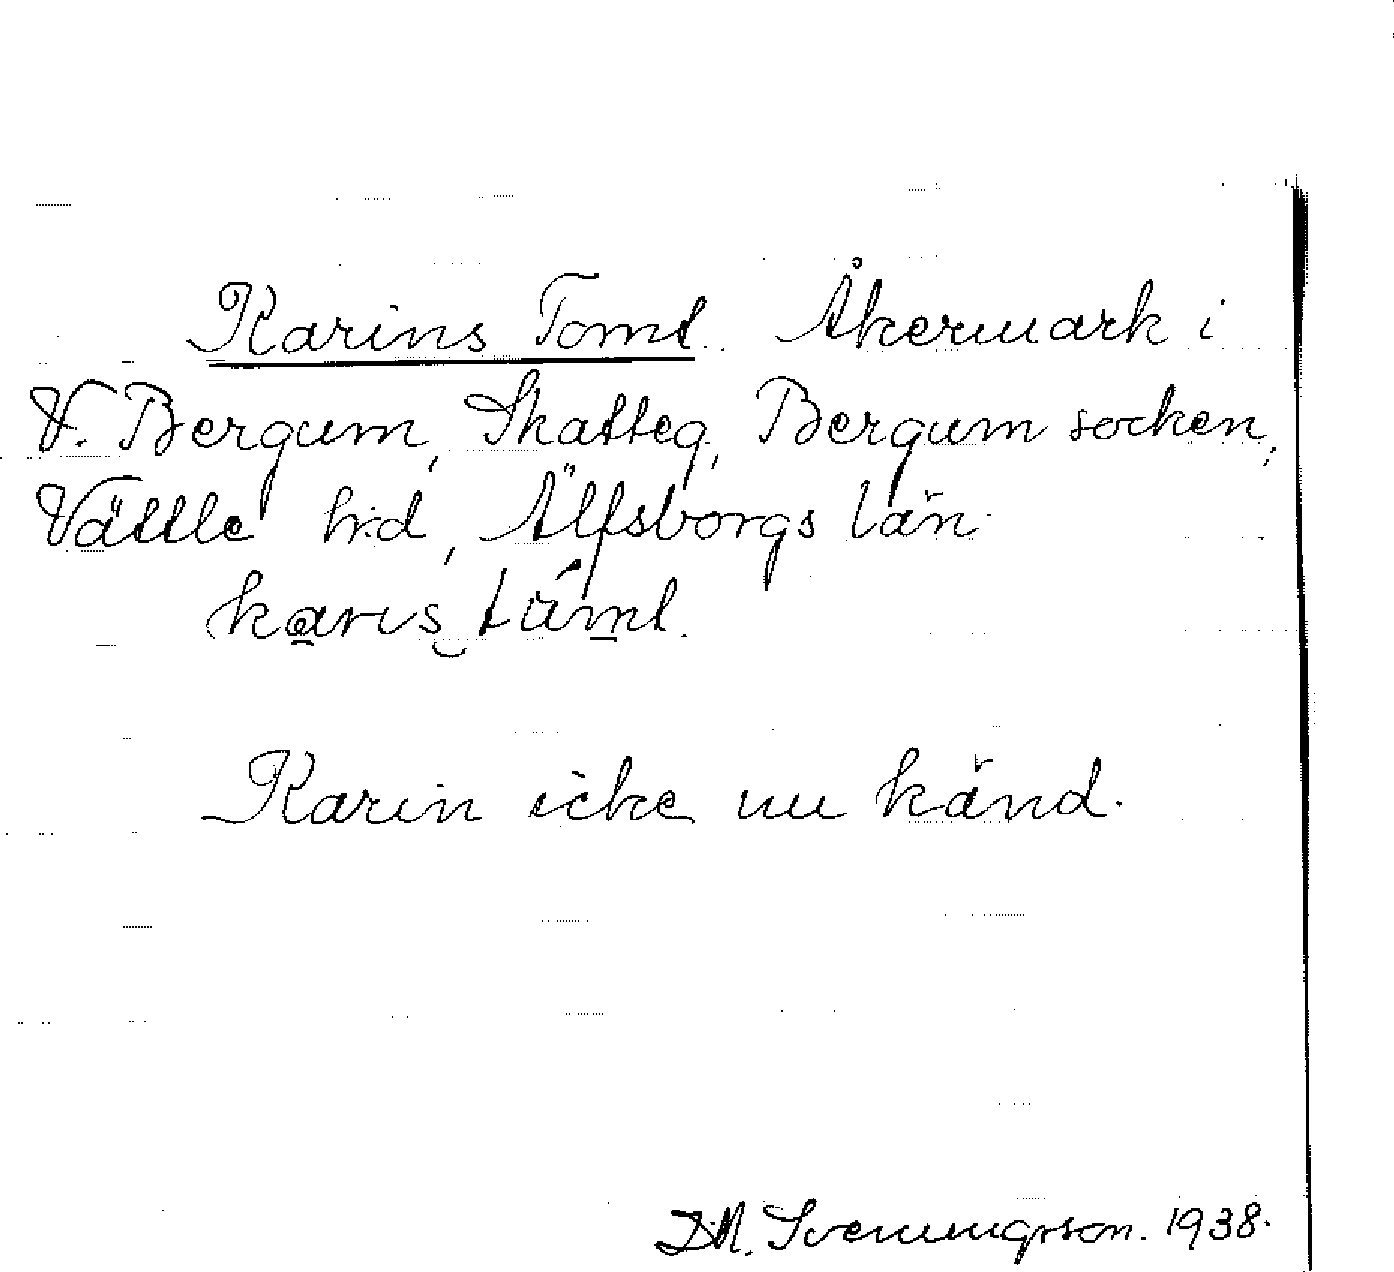 Karins Tomt. Åkermark i
V. Bergum, Skatteg, Bergum socken,
Vättle h:d, Älfsborgs län.
karis
Karin icke nu känd.
D.A. Svenningsson. 1938.